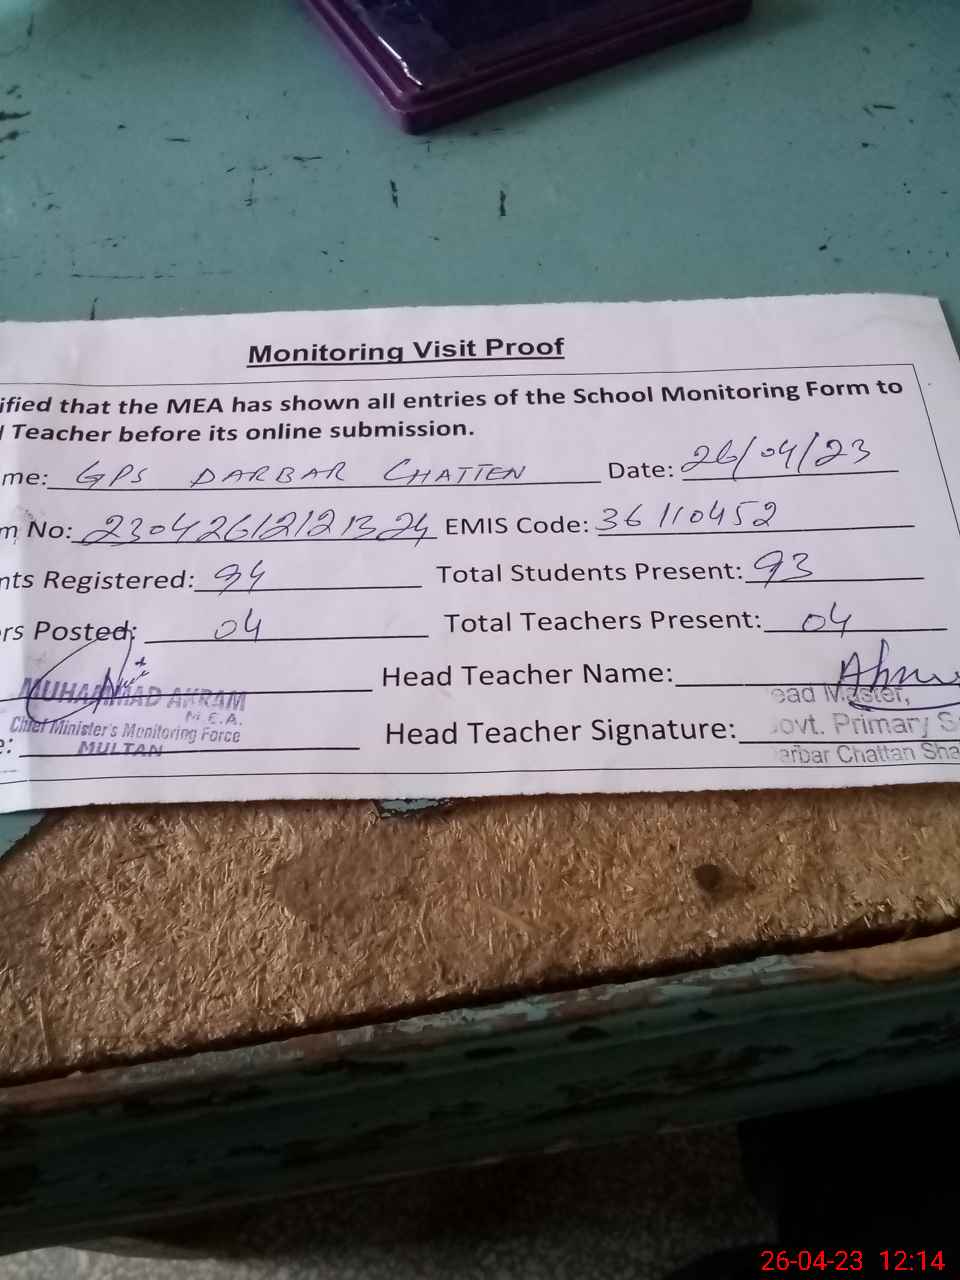 Monitoring Visit Proof
ified that the MEA has shown all entries of the School Monitoring Form to
Teacher before its online submission.
me: GPS DARBAR CHATTEN Date: 26/04/23
m No: 23042612121324 EMIS Code: 36110452
nts Registered: 94 Total Students Present: 93
rs Posted: 04 Total Teachers Present: 04
Head Teacher Name:
MUHAMMAD AKRAM
M.E.A.
Chief Minister's Monitoring Force
MULTAN
e: Head Teacher Signature:
ead Master,
ovt. Primary S
arbar Chattan Sha
26-04-23 12:14